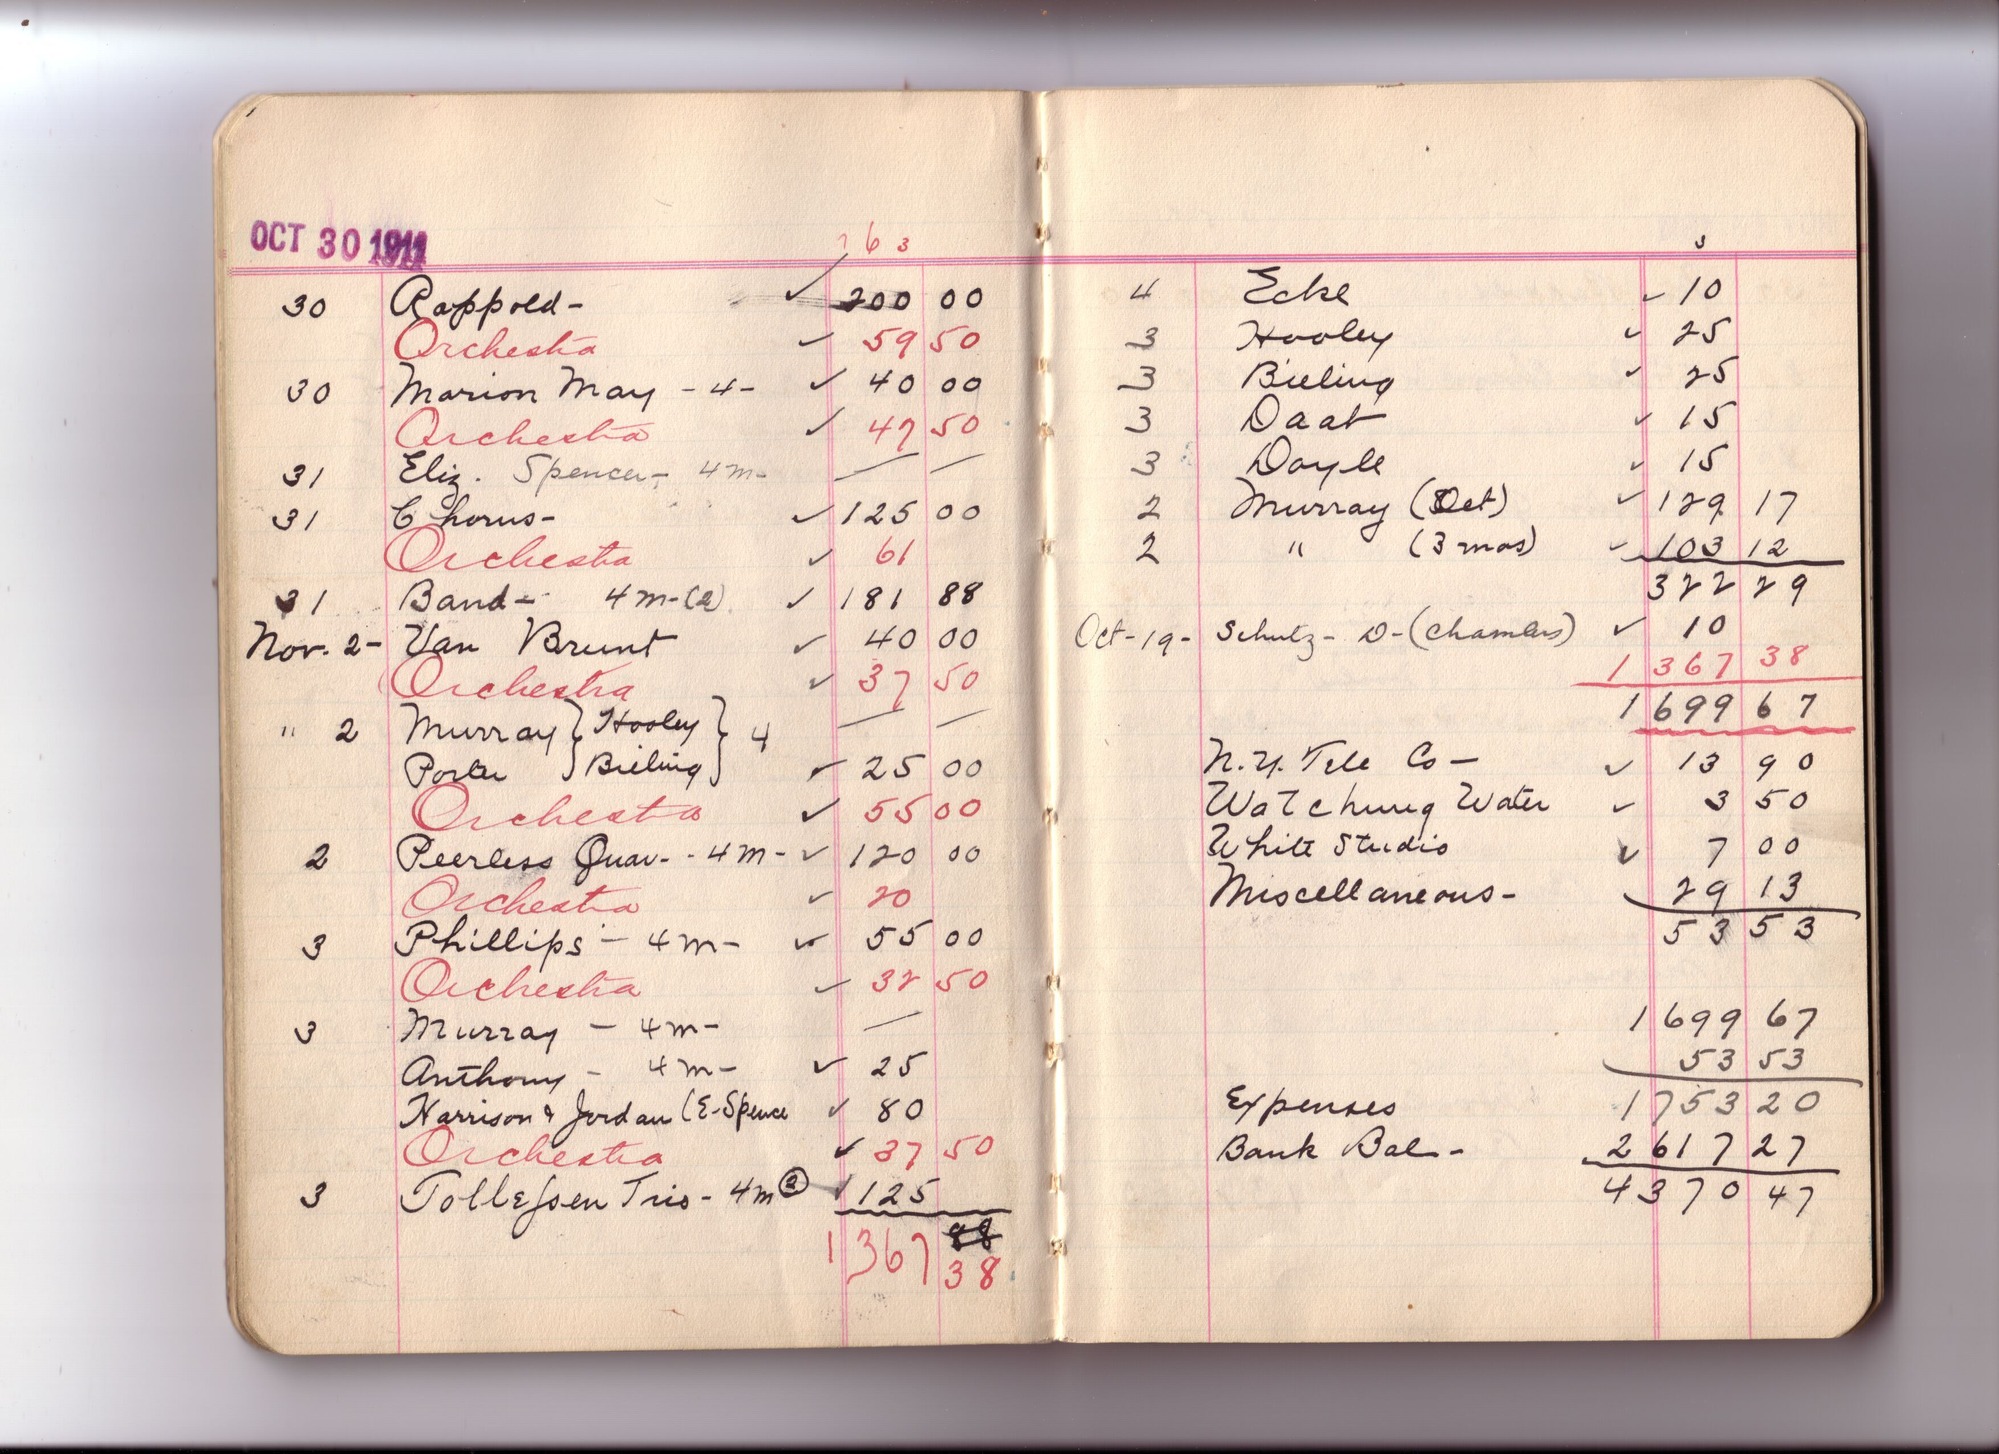 OCT 30 1911
763
30 Rappold - ✓ 200 00
Orchestra ✓ 59 50
30 Marion May - 4 - ✓ 40 00
Orchestra ✓ 47 50
31 Eliz. Spencer - 4m - — —
31 Chorus - ✓ 125 00
Orchestra ✓ 61
31 Band - 4m - (2) ✓ 181 88
Nov. 2 - Van Brunt ✓ 40 00
Orchestra ✓ 37 50
" 2 Murray } Hooley } 4 — —
Porter } Bieling } ✓ 25 00
Orchestra ✓ 55 00
2 Peerless Quar. - 4m - ✓ 120 00
Orchestra ✓ 20
3 Phillips - 4m - ✓ 55 00
Orchestra ✓ 32 50
3 Murray - 4m - —
Anthony - 4m - ✓ 25
Harrison & Jordan (E. Spence ✓ 80
Orchestra ✓ 37 50
3 Tollefsen Trio - 4m (2) ✓ 125
1 367 88
38
3
4 Ecke ✓ 10
3 Hooley ✓ 25
3 Bieling ✓ 25
3 Daab ✓ 15
3 Doyle ✓ 15
2 Murray (Oct) ✓ 129 17
2 " (3 mos) ✓ 103 12
322 29
Oct - 19 - Schutz - D - (Chambers) ✓ 10
1 367 38
1 699 67
N.Y. Tele Co - ✓ 13 90
Watchung Water ✓ 3 50
White Studio ✓ 7 00
Miscellaneous - 29 13
53 53
1 699 67
53 53
Expenses 1 753 20
Bank Bal - 2 617 27
4 370 47